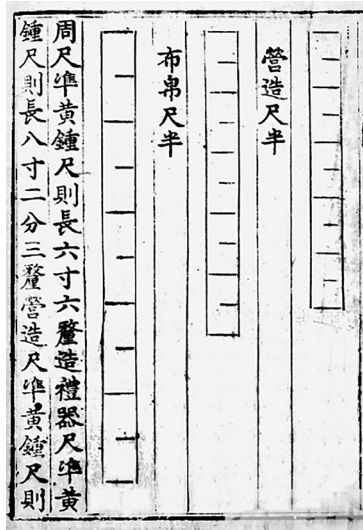 營造尺半
布帛尺半
周尺準黃鍾尺則長六寸六釐造禮器尺準黃
鍾尺則長八寸二分三釐營造尺準黃鍾尺則